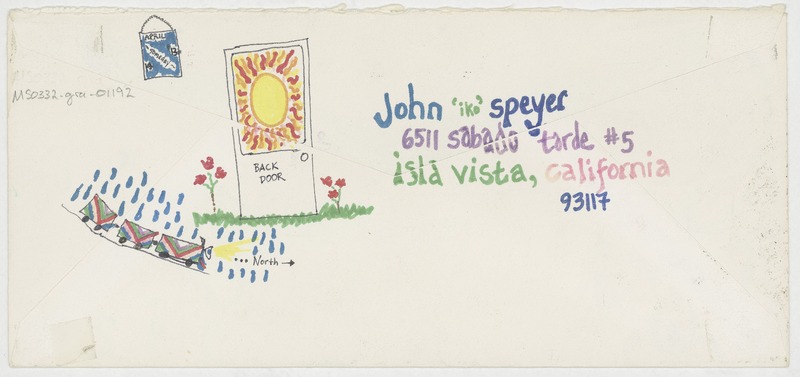 APRIL
MS0332-gre-01192
BACK
DOOR
... North →
John 'iko' speyer
6511 sabado tarde #5
isla vista, california
93117